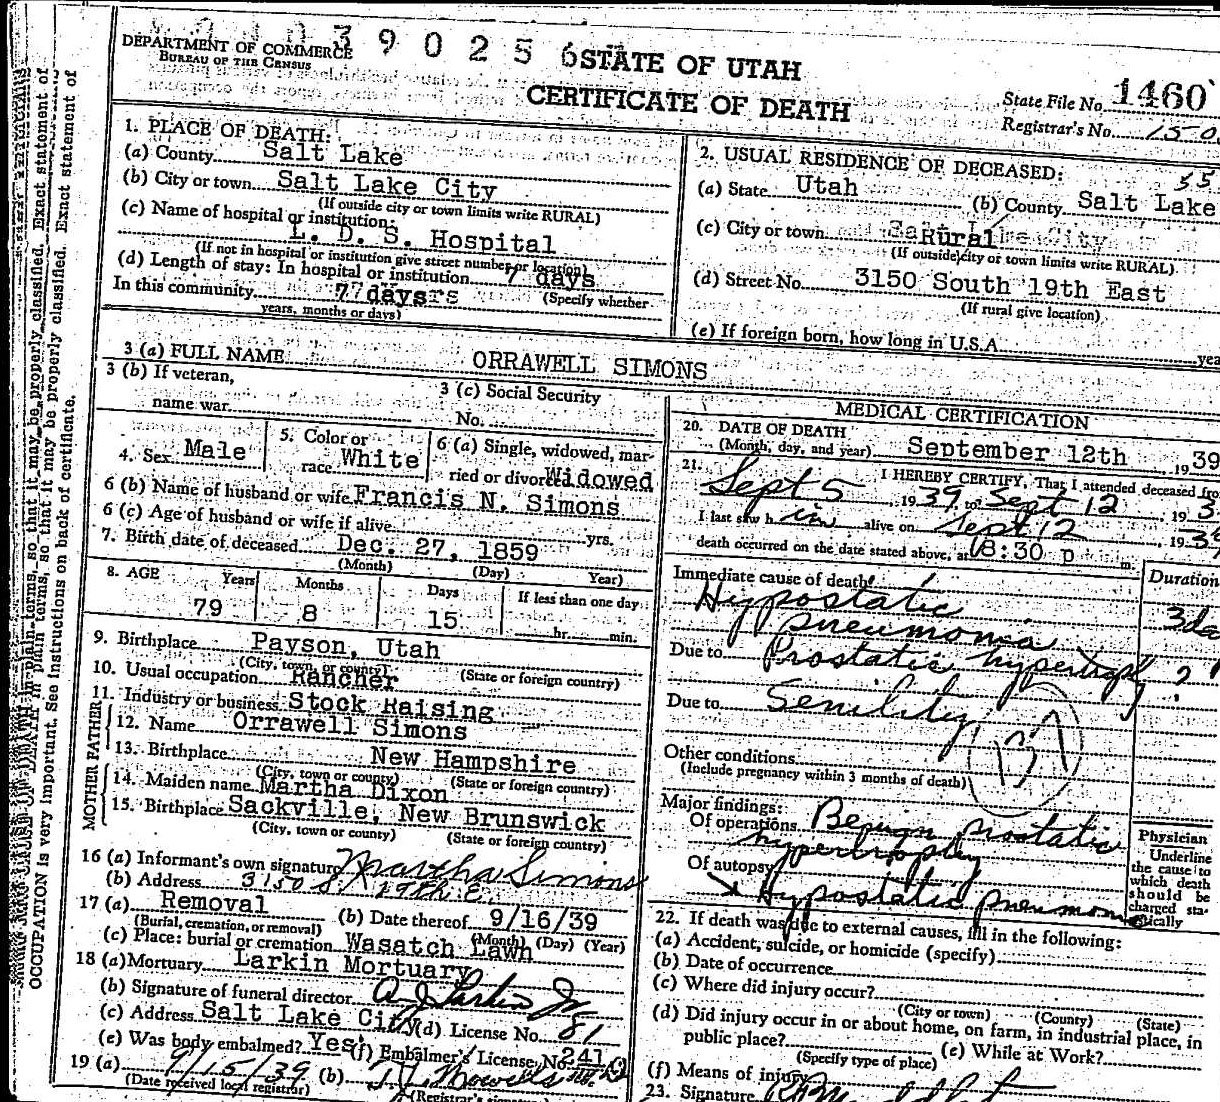 3 9 0 2 5 6
DEPARTMENT OF COMMERCE
BUREAU OF THE CENSUS
STATE OF UTAH
CERTIFICATE OF DEATH
State File No. 1460
Registrar's No. 150
1. PLACE OF DEATH:
(a) County Salt Lake
(b) City or town Salt Lake City
(If outside city or town limits write RURAL)
(c) Name of hospital or institution:
L. D. S. Hospital
(If not in hospital or institution give street number or location)
(d) Length of stay: In hospital or institution 7 days
In this community 77 days
(Specify whether
years, months or days)
2. USUAL RESIDENCE OF DECEASED: 35
(a) State Utah (b) County Salt Lake
(c) City or town Rural
(If outside city or town limits write RURAL)
(d) Street No. 3150 South 19th East
(If rural give location)
(e) If foreign born, how long in U.S.A. yea
3 (a) FULL NAME ORRAWELL SIMONS
3 (b) If veteran,
name war
3 (c) Social Security
No.
4. Sex Male
5. Color or
race White
6 (a) Single, widowed, mar-
ried or divorced Widowed
6 (b) Name of husband or wife Francis N. Simons
6 (c) Age of husband or wife if alive yrs.
7. Birth date of deceased Dec. 27, 1859
(Month) (Day) Year)
8. AGE Years Months Days If less than one day
79 8 15 hr. min.
9. Birthplace Payson, Utah
(City, town, or county) (State or foreign country)
10. Usual occupation Rancher
11. Industry or business Stock Raising
FATHER
12. Name Orrawell Simons
13. Birthplace New Hampshire
(City, town or county) (State or foreign country)
MOTHER
14. Maiden name Martha Dixon
15. Birthplace Sackville, New Brunswick
(City, town or county) (State or foreign country)
16 (a) Informant's own signature Martha Simons
(b) Address 3150 S. 19th E.
17 (a) Removal (b) Date thereof 9/16/39
(Burial, cremation, or removal) (Month) (Day) (Year)
(c) Place: burial or cremation Wasatch Lawn
18 (a) Mortuary Larkin Mortuary
(b) Signature of funeral director A J Larkin Jr
(c) Address Salt Lake City (d) License No. 81
(e) Was body embalmed? Yes (f) Embalmer's License No. 241
19 (a) 9/15/39 (b)
(Date received local registrar) (Registrar's
MEDICAL CERTIFICATION
20. DATE OF DEATH
(Month, day, and year) September 12th, 1939
21. I HEREBY CERTIFY, That I attended deceased fro
Sept 5 1939, to Sept 12, 193
I last saw h im alive on Sept 12, 1939
death occurred on the date stated above, at 8:30 p m.
Immediate cause of death: Duration
Hypostatic
pneumonia 3 da
Due to Prostatic hypertrophy 2
Due to Senility
137
Other conditions
(Include pregnancy within 3 months of death)
Major findings:
Of operations Benign prostatic
hypertrophy
Of autopsy
Hypostatic pneumonia
Physician
Underline
the cause to
which death
should be
charged sta-
tistically
22. If death was due to external causes, fill in the following:
(a) Accident, suicide, or homicide (specify)
(b) Date of occurrence
(c) Where did injury occur?
(City or town) (County) (State)
(d) Did injury occur in or about home, on farm, in industrial place, in
public place? (e) While at Work?
(Specify type of place)
(f) Means of injury
23. Signature
OCCUPATION is very important. See instructions on back of certificate.
in plain terms, so that it may be properly classified. Exact statement of